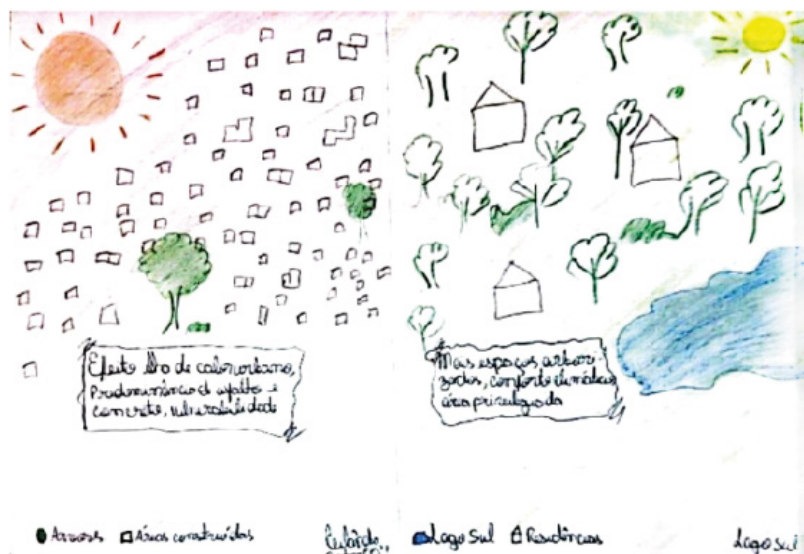 Efeito Ilha de calor urbano,
Predominância de asfalto e
concreto, vulnerabilidade
Mais espaços arbori-
zados, conforto climático,
área privilegiada
Árvores Áreas construídas
Lago Sul Residências
Lago Sul